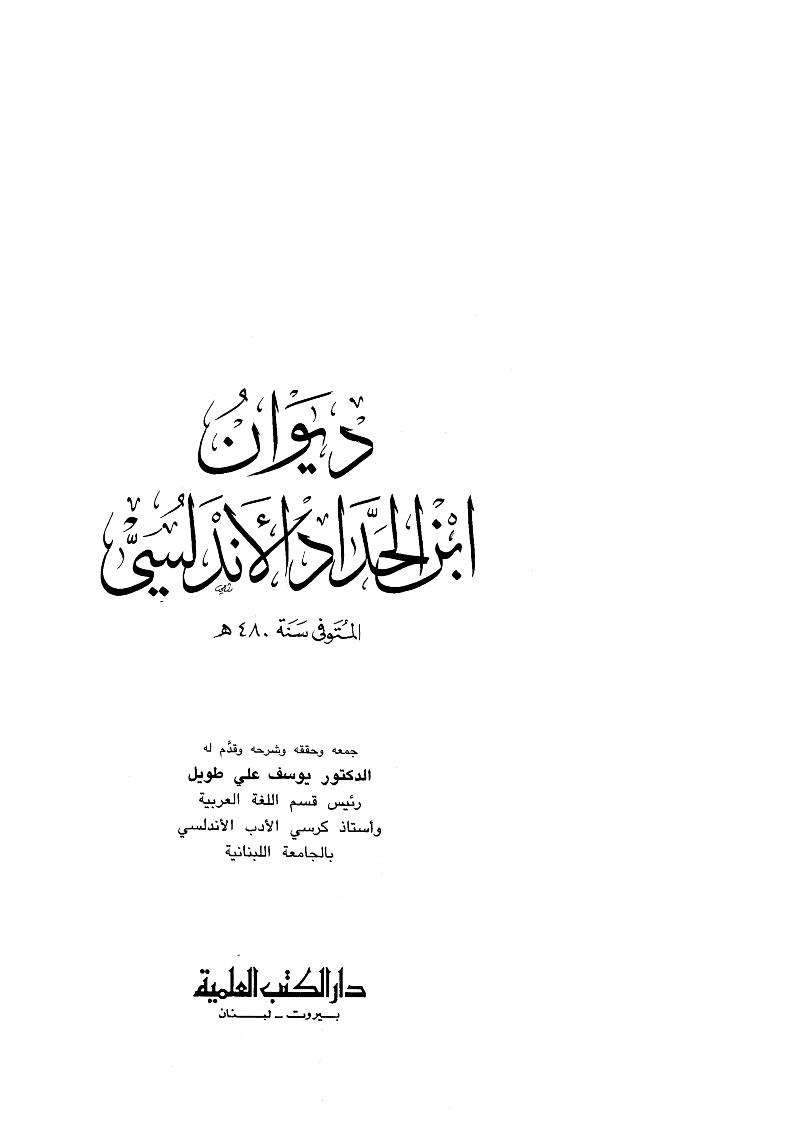 ديوان
ابن الحداد الأندلسي
المتوفى سنة ٤٨٠ هـ
جمعه وحققه وشرحه وقدَّم له
الدكتور يوسف علي طويل
رئيس قسم اللغة العربية
وأستاذ كرسي الأدب الأندلسي
بالجامعة اللبنانية
دار الكتب العلمية
بيروت - لبنان